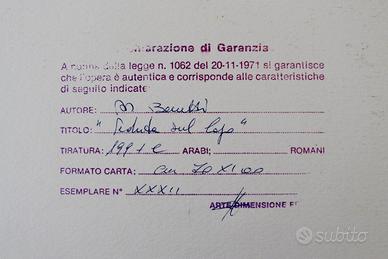 arazione di Garanzia
A norma della legge n. 1062 del 20-11-1971 si garantisce
che l'opera è autentica e corrisponde alle caratteristiche
di seguito indicate:
AUTORE:
TITOLO: "Seduta sul
TIRATURA: ARABI; ROMANI
FORMATO CARTA: cm 70x100
ESEMPLARE N° XXXII
ARTE DIMENSIONE
subito